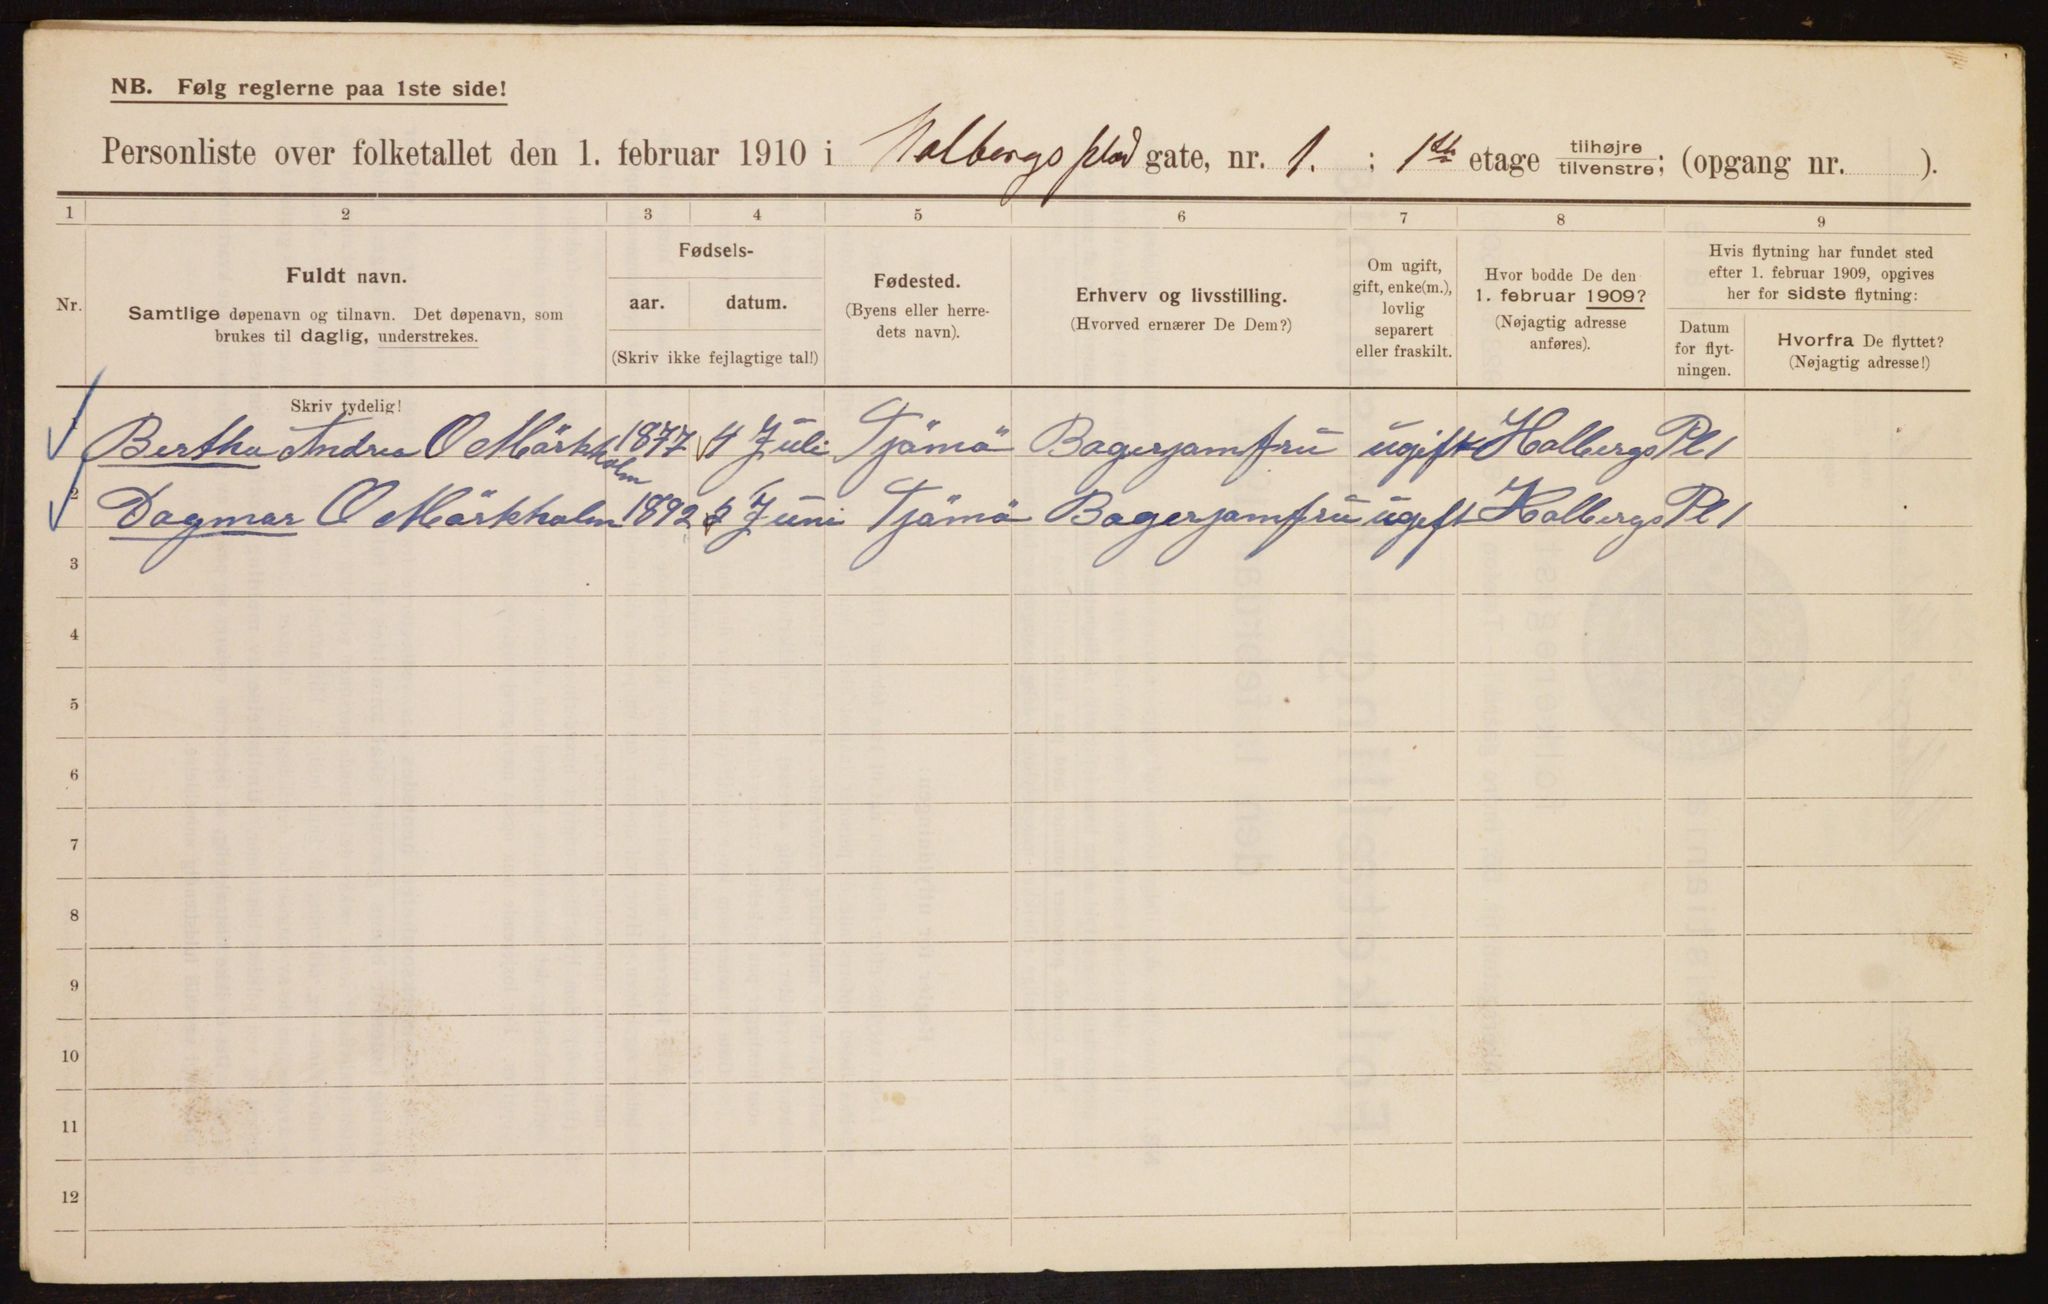 NB. Følg reglerne paa 1ste side!
Personliste over folketallet den 1. februar 1910 i Holbergs plads gate, nr. 1. ; 1ste etage tilhøjre tilvenstre; (opgang nr. ).
1 2 3 4 5 6 7 8 9
Nr.
Fuldt navn.
Samtlige døpenavn og tilnavn. Det døpenavn, som
brukes til daglig, understrekes.
Fødsels-
aar. datum.
(Skriv ikke fejlagtige tal!)
Fødested.
(Byens eller herre-
dets navn).
Erhverv og livsstilling.
(Hvorved ernærer De Dem?)
Om ugift,
gift, enke(m.),
lovlig
separert
eller fraskilt.
Hvor bodde De den
1. februar 1909?
(Nøjagtig adresse
anføres).
Hvis flytning har fundet sted
efter 1. februar 1909, opgives
her for sidste flytning:
Datum
for flyt-
ningen.
Hvorfra De flyttet?
(Nøjagtig adresse!)
Skriv tydelig!
Bertha Andrea O Mörkholm 1877 4 Juli Tjömö Bagerjomfru ugift Holbergs Pl 1
2 Dagmar O Mörkholm 1892 Juni Tjömö Bagerjomfru ugift Holbergs Pl 1
3
4
5
6
7
8
9
10
11
12